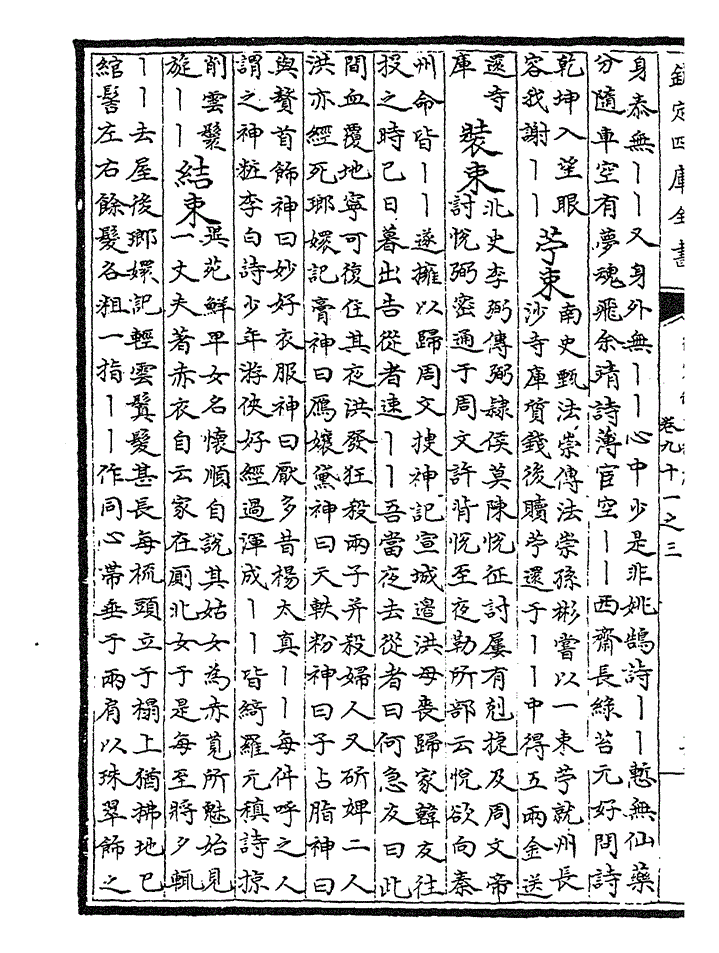 欽定四庫全書
卷九十一之三
身泰無丨丨又身外無丨丨心中少是非姚鵠詩丨丨慙無仙藥
分隨車空有夢魂飛余靖詩薄宦空丨丨西齋長綠苔元好問詩
乾坤入望眼
容我謝丨丨
苧束
南史甄法崇傳法崇孫彬嘗以一束苧就州長
沙寺庫質錢後贖苧還于丨丨中得五兩金送
還寺
庫
裝束
北史李弼傳弼隸侯莫陳悅征討屢有剋捷及周文帝
討悅弼密通于周文許背悅至夜勒所部云悅欲向秦
州命皆丨丨遂擁以歸周文搜神記宣城邉洪母喪歸家韓友往
投之時已日暮出告從者速丨丨吾當夜去從者曰何急友曰此
間血覆地寧可復住其夜洪發狂殺兩子并殺婦人又斫婢二人
洪亦經死瑯嬛記膏神曰鴈孃黛神曰天軼粉神曰子占脂神曰
與贅首飾神曰妙好衣服神曰厭多昔楊太真丨丨每件呼之人
謂之神粧李白詩少年游俠好經過渾成丨丨皆綺羅元稹詩掠
削雲鬟
旋丨丨
結束
異苑鮮卑女名懷順自說其姑女為赤莧所魅始見
一丈夫著赤衣自云家在厠北女于是每至將夕輒
丨丨去屋後瑯嬛記輕雲鬒髮甚長每梳頭立于榻上猶拂地已
綰髻左右餘髮各粗一指丨丨作同心帶垂于兩肩以珠翠飾之